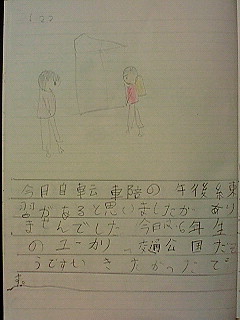 1.22
今日自転車陪の午後練
習があると思いましたがあり
ませんでした 今日は6年生
の
交通公園だそ
うですいきたかったで
す。